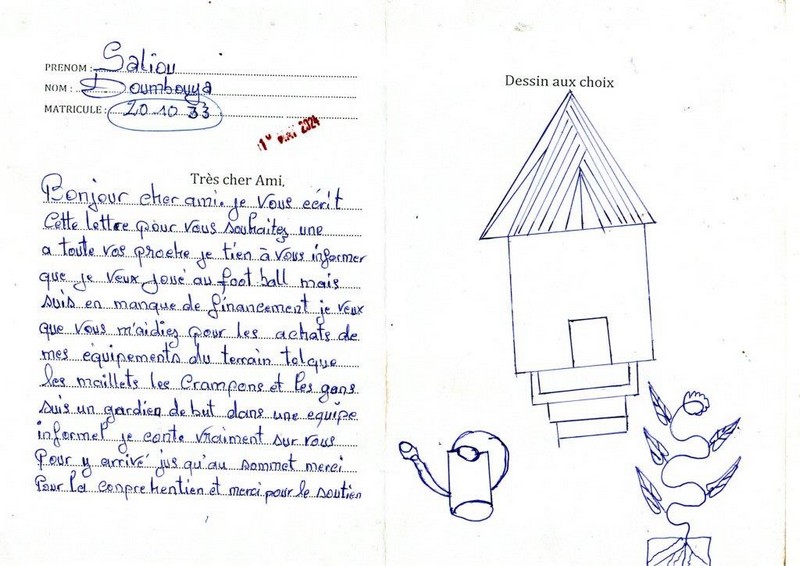 PRENOM : Saliou
NOM : Doumbouya
MATRICULE : 20.10 33
1er MAI 2024
Très cher Ami,
Bonjour cher ami. je vous ecrit
Cette lettre pour vous souhaitez une
a toute vos proche je tien à vous informer
que je veux joué au foot ball mais
suis en manque de financement je veux
que vous m'aidiez pour les achats de
mes equipements du terrain telque
les maillets les Crampons et les gans
suis un gardien de but dans une equipe
informel je conte vraiment sur vous
Pour y arrivé jus qu'au sommet merci
Pour la conprehentien et merci pour le soutien
Dessin aux choix